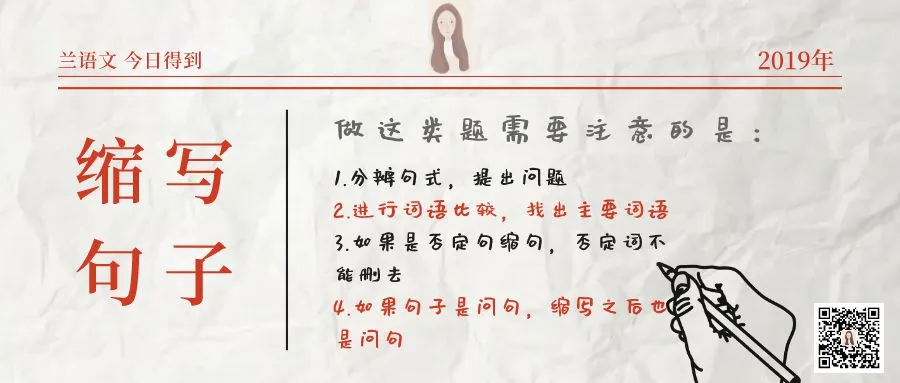 兰语文 今日得到
2019年
缩写
句子
做这类题需要注意的是：
1.分辨句式，提出问题
2.进行词语比较，找出主要词语
3.如果是否定句缩句，否定词不
能删去
4.如果句子是问句，缩写之后也
是问句